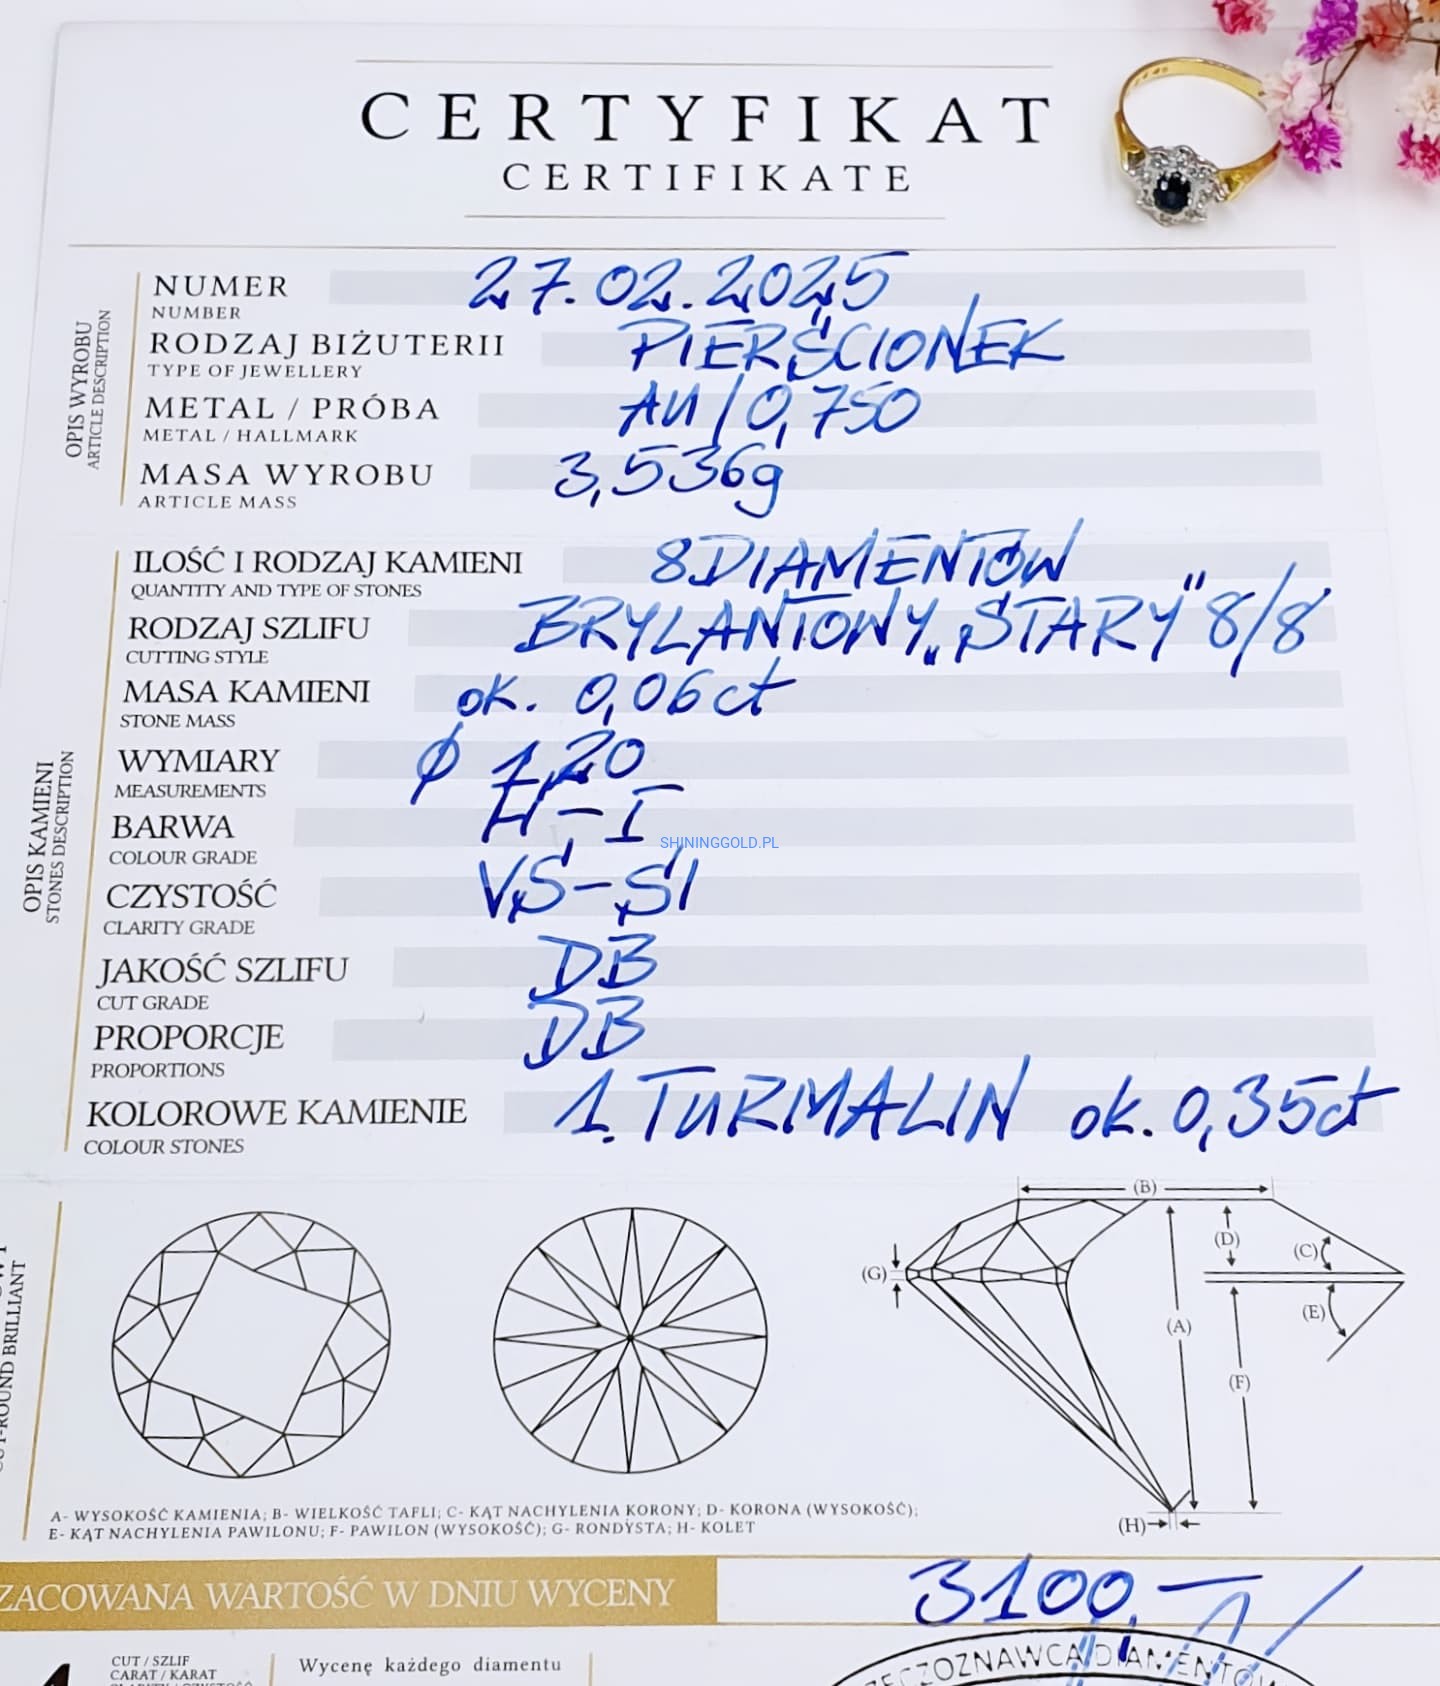 CERTYFIKAT
CERTIFIKATE
NUMER 27.02.2025
NUMBER
RODZAJ BIŻUTERII PIERŚCIONEK
TYPE OF JEWELLERY
METAL / PRÓBA AU/0,750
METAL / HALLMARK
MASA WYROBU 3,536g
ARTICLE MASS
OPIS WYROBU
ARTICLE DESCRIPTION
ILOŚĆ I RODZAJ KAMIENI 8 DIAMENTÓW
QUANTITY AND TYPE OF STONES
RODZAJ SZLIFU BRYLANTOWY „STARY" 8/8
CUTTING STYLE
MASA KAMIENI ok. 0,06ct
STONE MASS
WYMIARY ϕ 1,20
MEASUREMENTS
BARWA H-I
COLOUR GRADE
SHININGGOLD.PL
CZYSTOŚĆ VS-SI
CLARITY GRADE
JAKOŚĆ SZLIFU DB
CUT GRADE
PROPORCJE DB
PROPORTIONS
KOLOROWE KAMIENIE 1. TURMALIN ok. 0,35ct
COLOUR STONES
OPIS KAMIENI
STONES DESCRIPTION
(B)
(D)
(C)
(G)
(E)
(A)
(F)
(H)
CUT-ROUND BRILLIANT
A- WYSOKOŚĆ KAMIENIA; B- WIELKOŚĆ TAFLI; C- KĄT NACHYLENIA KORONY; D- KORONA (WYSOKOŚĆ);
E- KĄT NACHYLENIA PAWILONU; F- PAWILON (WYSOKOŚĆ); G- RONDYSTA; H- KOLET
ZACOWANA WARTOŚĆ W DNIU WYCENY 3100,-
CUT / SZLIF
CARAT / KARAT
Wycenę każdego diamentu
RZECZOZNAWCA DIAMENTÓW